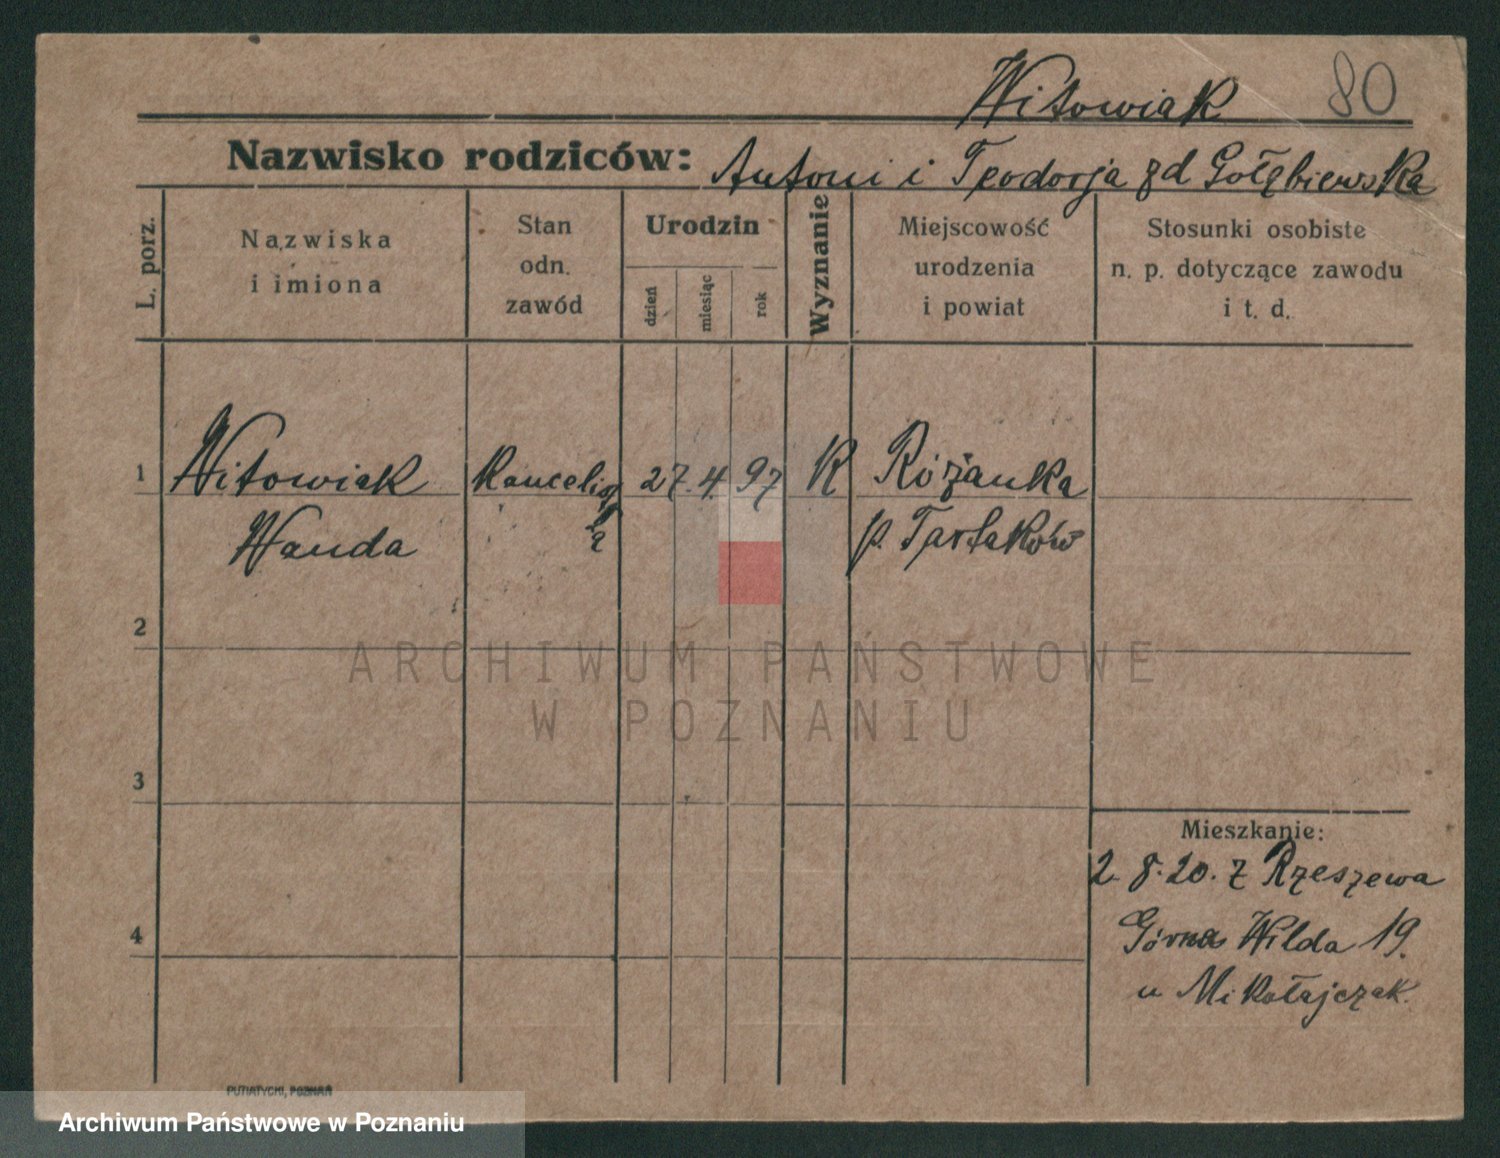 Witowiak 80
Nazwisko rodziców: Antoni i Teodozja zd Gołębiewska
L. porz.
Nazwiska
i imiona
Stan
odn.
zawód
Urodzin
dzień
miesiąc
rok
Wyznanie
Miejscowość
urodzenia
i powiat
Stosunki osobiste
n. p. dotyczące zawodu
i t. d.
1 Witowiak 27. 4. 97 K Różanka
Wanda p. Tartaków
2
ARCHIWUM PAŃSTWOWE
W POZNANIU
3
Mieszkanie:
2. 8. 20. z Rzeszewa
4
Górna Wilda 19.
u Mikołajczak.
PUTIATYCKI, POZNAŃ
Archiwum Państwowe w Poznaniu